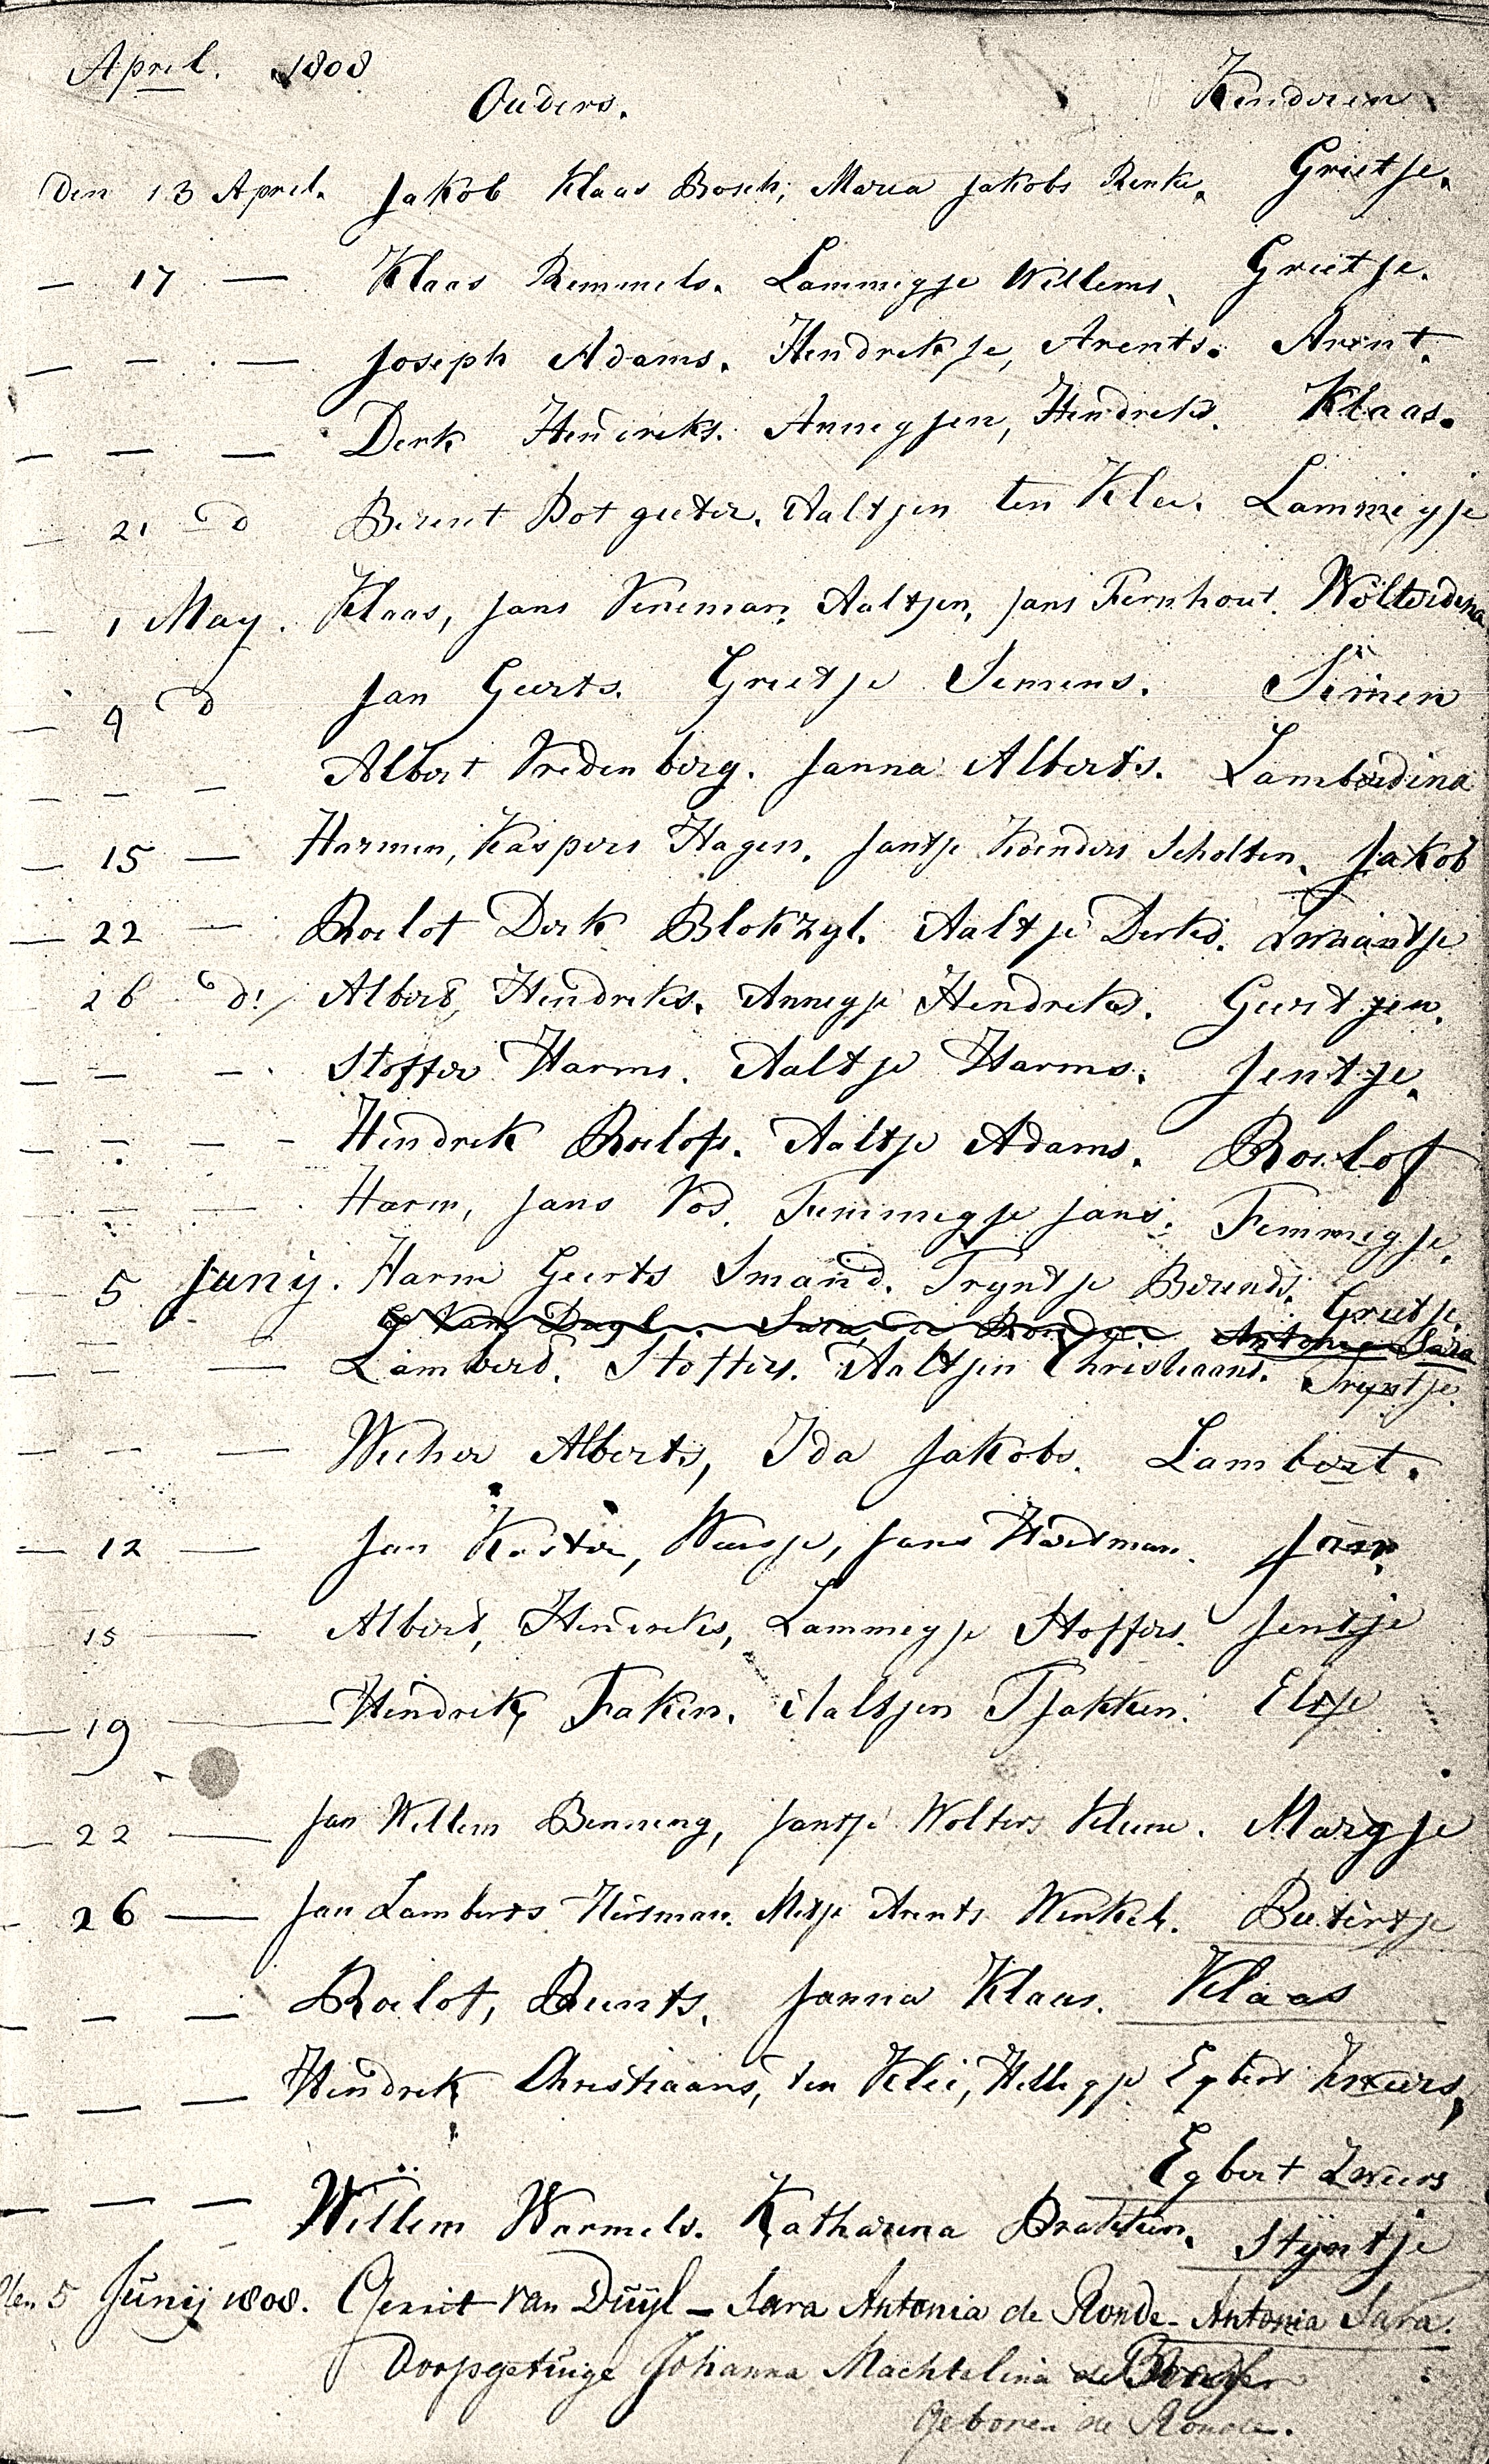 April. 1808
Ouders. Kinderen
Den 13 April. Jakob Klaas Bosch, Maria Jakobs Renke. Grietje.
— 17 — Klaas Remmels. Lammigje Willems. Grietje.
— — — Joseph Adams. Hendrikje, Arents. Arent.
— — — Derk Hendriks. Annegjen, Hendriks. Klaas.
— 21 d Berent Botgieter. Aaltjen ten Klee. Lammigje
— 1 May. Klaas, Jans Veneman, Aaltjen, Jans Fernhout. Wolterdina
— 9 d Jan Geerts. Grietje Siemens. Simen
— — — Albert Vredenberg. Janna Alberts. Lamberdina
— 15 — Harmen, Kaspers Hagen. Jantje Koenders Scholten. Jakob
— 22 — Roelof Derk Blokzyl. Aaltje Derks.
26 d. Albert, Hendriks. Annegje Hendriks. Geertjen.
— — — Stoffer Harms. Aaltje Harms. Jentje.
— — — Hendrik Roelofs. Aaltje Adams. Roelof
— — — Harm, Jans Vos. Femmegje Jans. Femmigje.
5 Junij. Harm Geerts Smand. Tryntje Berends. Grietje.
G Van Duyl Sara de Ronde Antonia Sara
— — — Lamberd. Stoffers. Aaltjen Christiaans. Tryntje.
— — — Wicher Alberts, Ida Jakobs. Lambert.
— 12 — Jan Koster, Jans Hardman. Jan.
15 — Albert, Hendriks, Lammegje Stoffers. Jentje
— 19 — Hendrik, Faken. Aaltjen Tjakken. Elsje
— 22 — Jan Willem Benning, Jantje Wolters Kleine. Margje
— 26 — Jan Lamberts Huisman. Metje Arents Winkel. Butertje
— — — Roelof, Berents. Janna Klaas. Klaas
— — — Hendrik Christiaans, ten Klei, Hilligje Egbert Zweers,
Egbert Zweers
— — — Willem Warmels. Katharina Brakken. Styntje
Den 5 Junij 1808. Gerrit van Duijl — Sara Antonia de Ronde — Antonia Sara.
Doopgetuige Johanna Machtelina de
Geboren de Ronde.